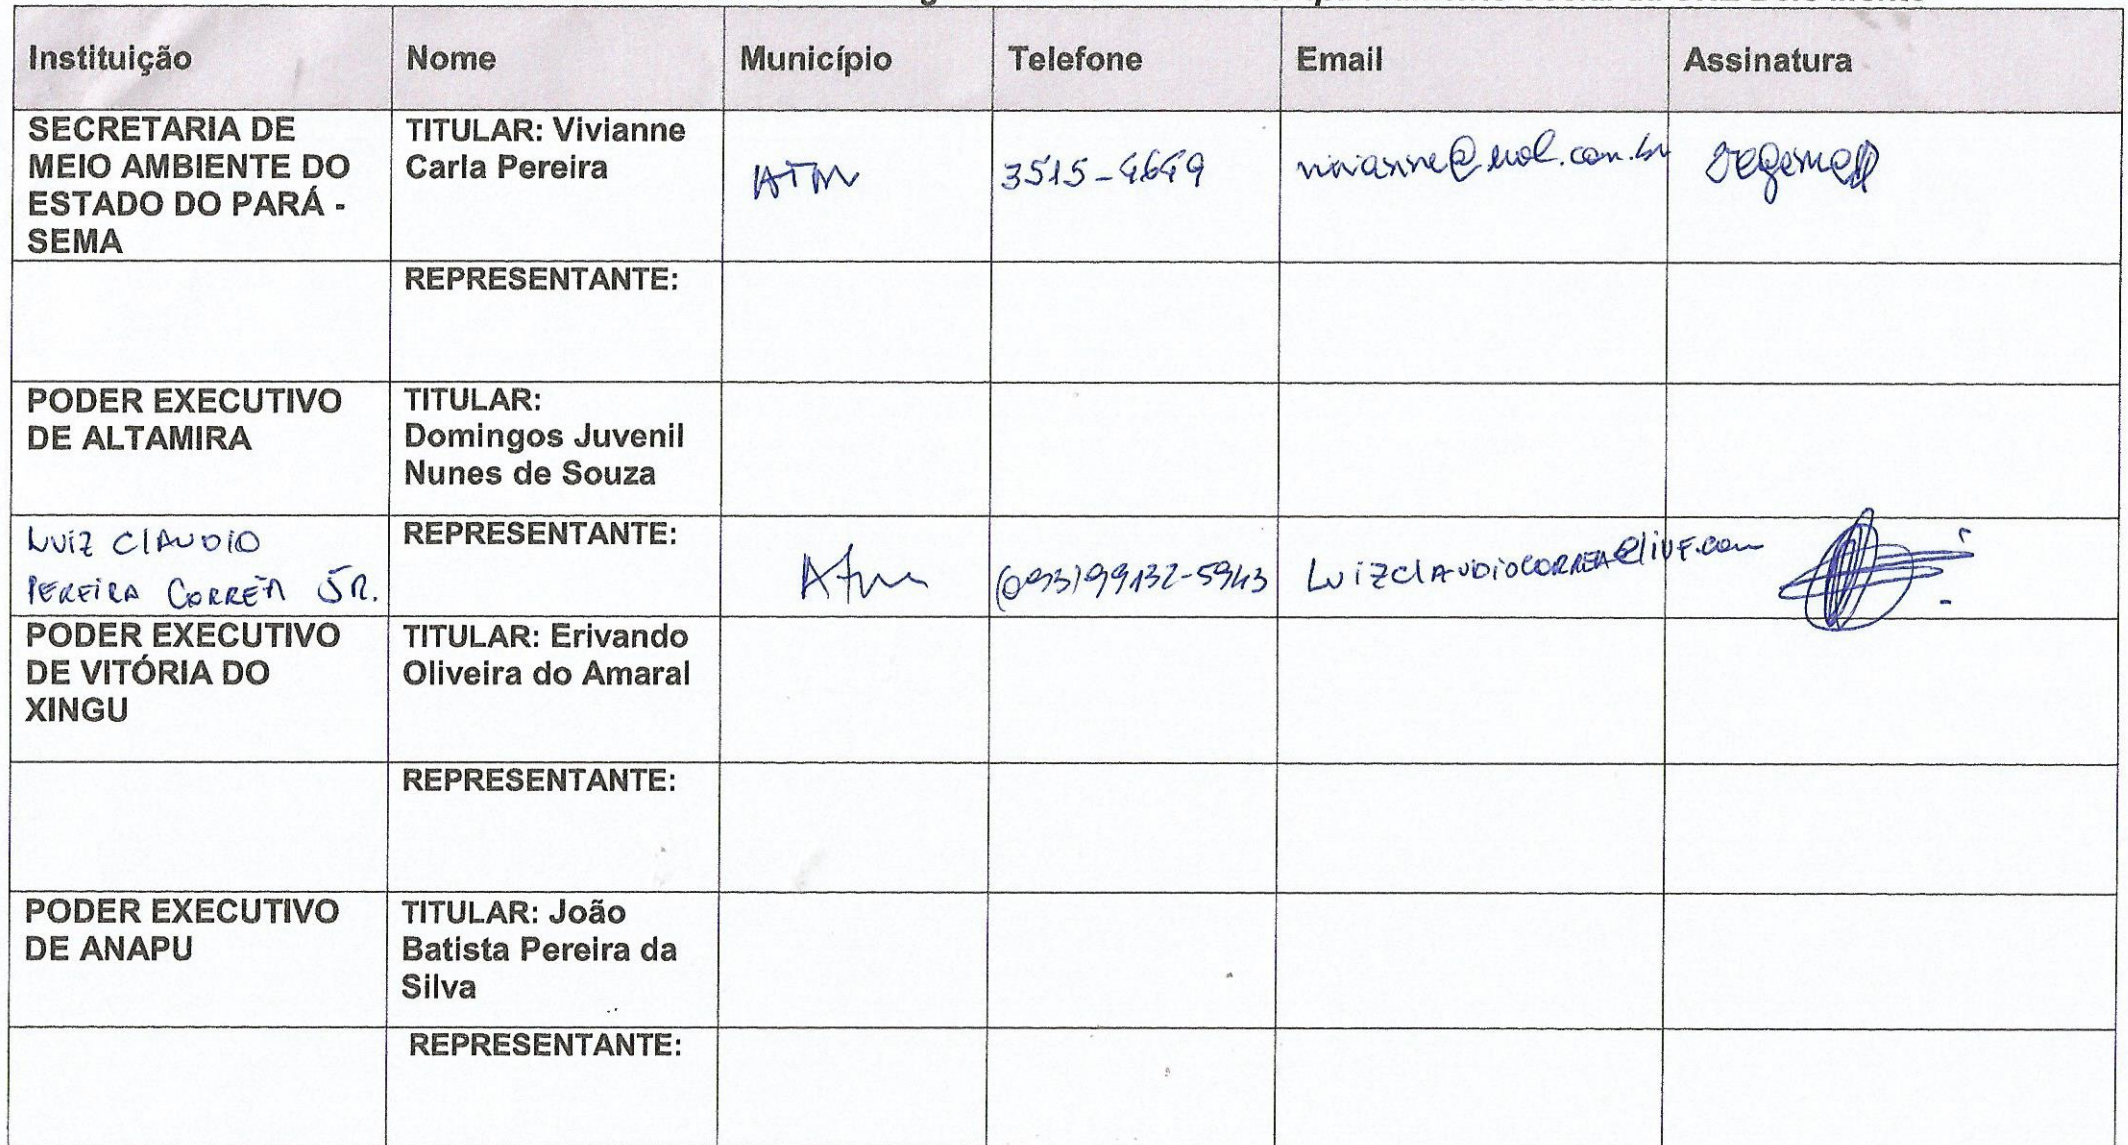 Instituição Nome Município Telefone Email Assinatura
SECRETARIA DE
MEIO AMBIENTE DO
ESTADO DO PARÁ -
SEMA
TITULAR: Vivianne
Carla Pereira
ATM
3515-4649
vivianne@uol.com.br
REPRESENTANTE:
PODER EXECUTIVO
DE ALTAMIRA
TITULAR:
Domingos Juvenil
Nunes de Souza
LUIZ CLAUDIO
PEREIRA CORRÊA JR.
REPRESENTANTE:
Atm
(093)99132-5943
LUIZCLAUDIOCORREA@LIVE.com
PODER EXECUTIVO
DE VITÓRIA DO
XINGU
TITULAR: Erivando
Oliveira do Amaral
REPRESENTANTE:
PODER EXECUTIVO
DE ANAPU
TITULAR: João
Batista Pereira da
Silva
REPRESENTANTE: